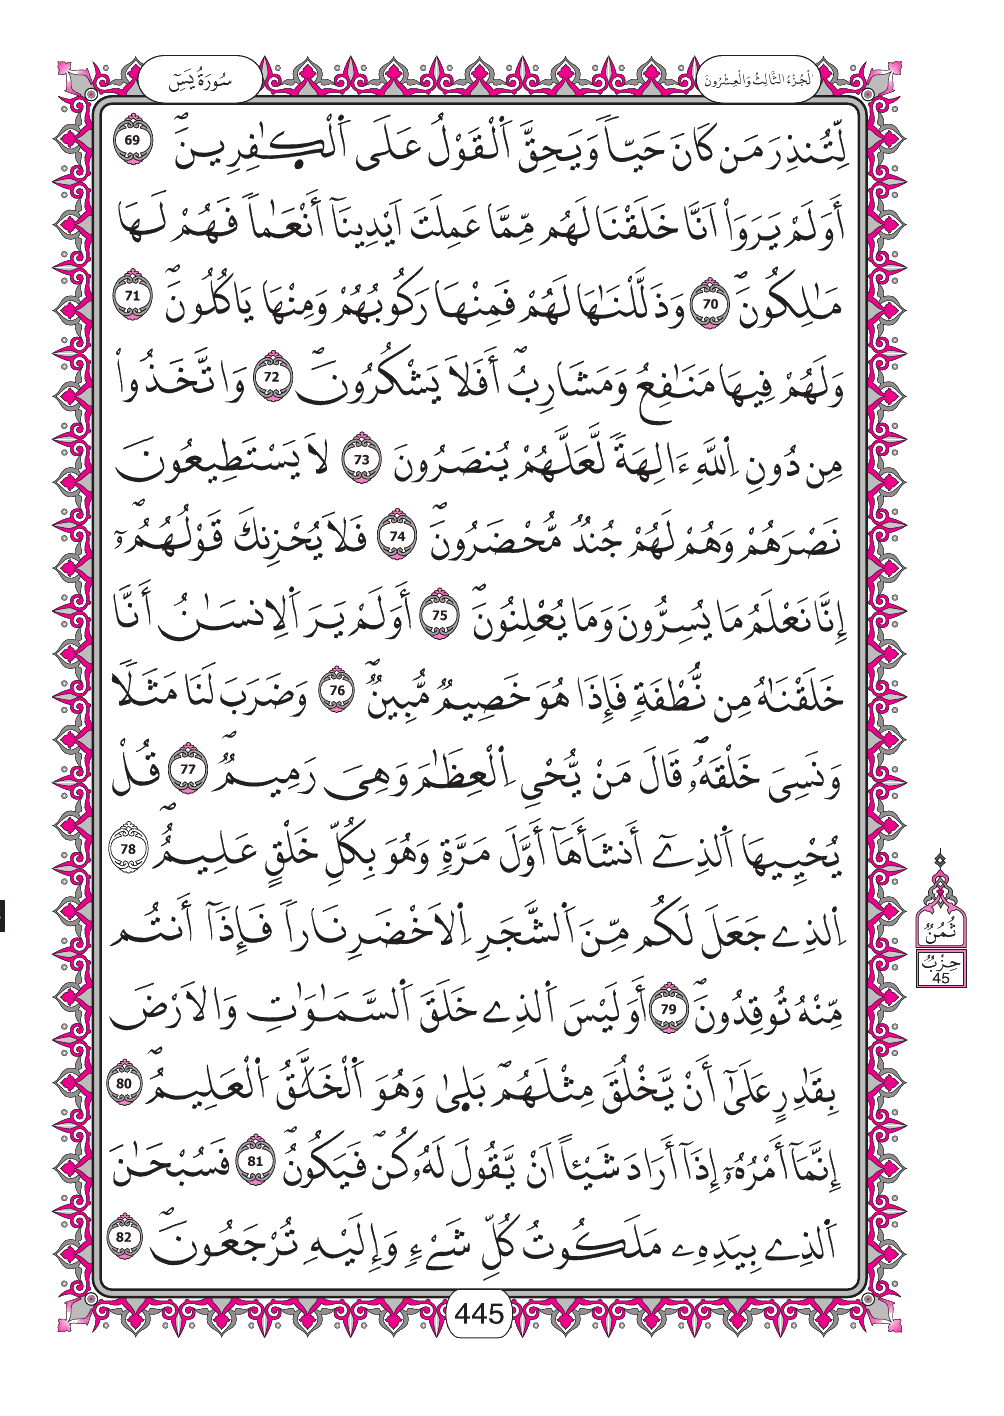 سُورَةُ يَسِٓ
الْجُزْءُ الثَّالِثُ وَالْعِشْرُونَ
لِّتُنذِرَ مَن كَانَ حَيّاٗ وَيَحِقَّ اَ۬لْقَوْلُ عَلَى اَ۬لْكٰ۪فِرِينَۖ 69
أَوَلَمْ يَرَوَاْ اَنَّا خَلَقْنَا لَهُم مِّمَّا عَمِلَتَ اَيْدِينَآ أَنْعَٰماٗ فَهُمْ لَهَا
مَٰلِكُونَۖ 70 وَذَلَّلْنَٰهَا لَهُمْ فَمِنْهَا رَكُوبُهُمْ وَمِنْهَا يَاكُلُونَۖ 71
وَلَهُمْ فِيهَا مَنَٰفِعُ وَمَشَارِبُۖ أَفَلَا يَشْكُرُونَۖ 72 وَاتَّخَذُواْ
مِن دُونِ اِ۬للَّهِ ءَالِهَةٗ لَّعَلَّهُمْ يُنصَرُونَ 73 لَا يَسْتَطِيعُونَ
نَصْرَهُمْ وَهُمْ لَهُمْ جُندٞ مُّحْضَرُونَۖ 74 فَلَا يُحْزِنكَ قَوْلُهُمُۥٓۖ
إِنَّا نَعْلَمُ مَا يُسِرُّونَ وَمَا يُعْلِنُونَۖ 75 أَوَلَمْ يَرَ اَ۬لِانسَٰنُ أَنَّا
خَلَقْنَٰهُ مِن نُّطْفَةٖ فَإِذَا هُوَ خَصِيمٞ مُّبِينٞۖ 76 وَضَرَبَ لَنَا مَثَلاٗ
وَنَسِيَ خَلْقَهُۥۖ قَالَ مَنْ يُّحْيِ اِ۬لْعِظَٰمَ وَهِيَ رَمِيمٞۖ 77 قُلْ
يُحْيِيهَا اَ۬لذِےٓ أَنشَأَهَآ أَوَّلَ مَرَّةٖ وَهُوَ بِكُلِّ خَلْقٍ عَلِيمٌۖ 78
اِ۬لذِے جَعَلَ لَكُم مِّنَ اَ۬لشَّجَرِ اِ۬لَاخْضَرِ نَاراٗ فَإِذَآ أَنتُم
مِّنْهُ تُوقِدُونَۖ 79 أَوَلَيْسَ اَ۬لذِے خَلَقَ اَ۬لسَّمَٰوَٰتِ وَالَارْضَ
بِقَٰدِرٍ عَلَىٰٓ أَنْ يَّخْلُقَ مِثْلَهُمۖ بَل۪يٰ وَهُوَ اَ۬لْخَلَّٰقُ اُ۬لْعَلِيمُۖ 80
إِنَّمَآ أَمْرُهُۥٓ إِذَآ أَرَادَ شَيْـٔاً اَنْ يَّقُولَ لَهُۥ كُنۖ فَيَكُونُۖ 81 فَسُبْحَٰنَ
اَ۬لذِے بِيَدِهِۦ مَلَكُوتُ كُلِّ شَےْءٖ وَإِلَيْهِ تُرْجَعُونَۖ 82
ثُمُنٌ
حِزْبٌ
45
445